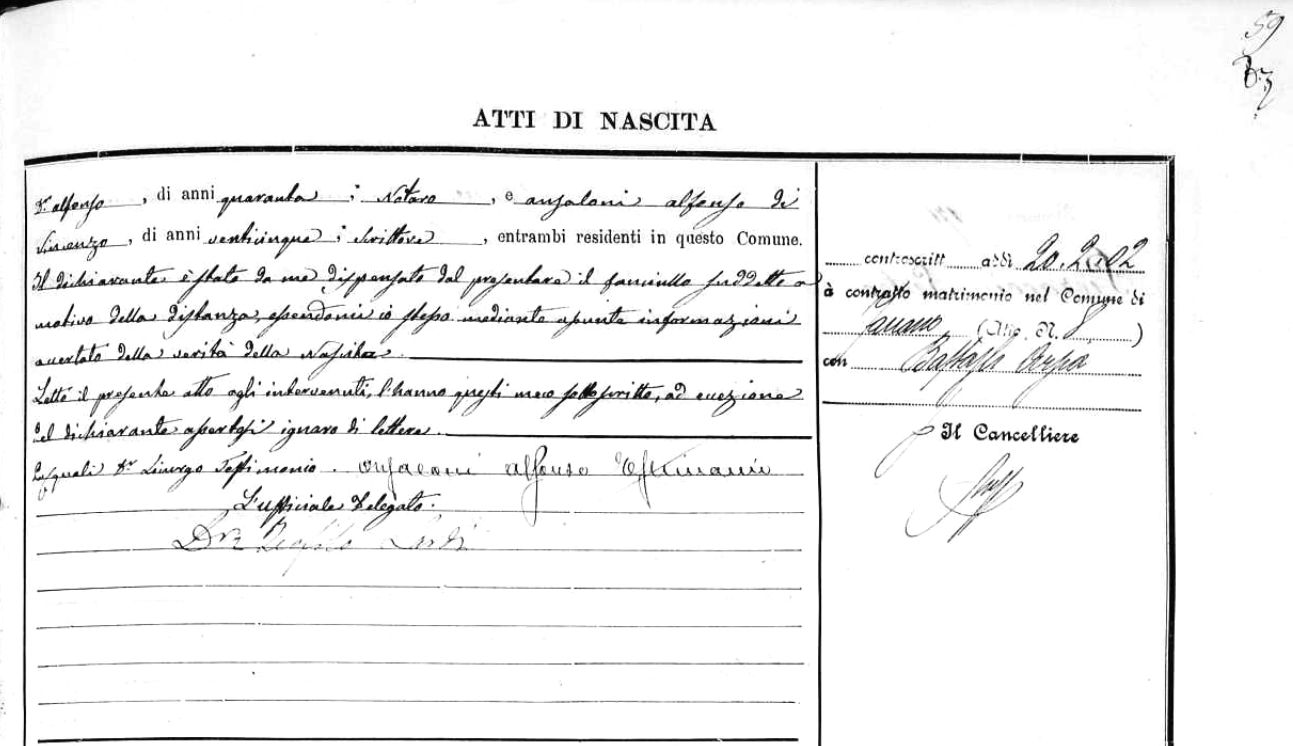 59
ATTI DI NASCITA
Dr. Alfonso, di anni quaranta; Notaro, e Ansaloni Alfonso di
Vincenzo, di anni venticinque; Scrittore, entrambi residenti in questo Comune.
Il dichiarante è stato da me dispensato dal presentare il fanciullo suddetto a
motivo della distanza, essendomi io stesso mediante assunte informazioni
accertato della verità della Nascita.
Letto il presente atto agli intervenuti, l'hanno questi meco sottoscritto, ad eccezione
del dichiarante assertosi ignaro di lettere.
Pasquali Dr. Licurgo Testimonio. Ansaloni Alfonso Testimonio
L'ufficiale Delegato.
controscritt addì 20.2.02
à contratto matrimonio nel Comune di
(Atto. N. 8)
con
Il Cancelliere